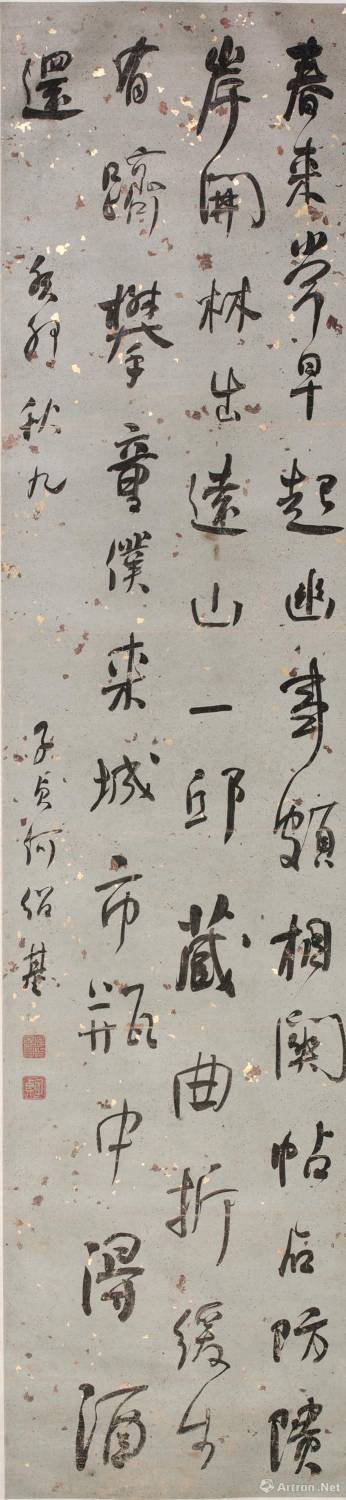 春来常早起幽事頗相關帖石防隤
岸開林出遠山一邱藏曲折緩步
有躋攀童僕来城市瓶中得酒
還 癸卯秋九 子貞何紹基
Artron.Net